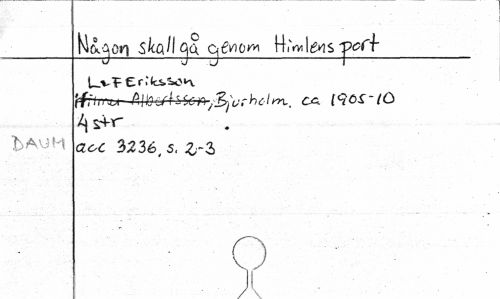 Någon skall gå genom Himlens port
L & F Eriksson
Hilmer Albertsson, Bjurholm. ca 1905-10
4 str
DAUM acc 3236, s. 2-3